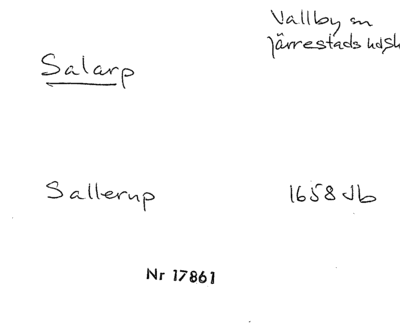 Vallby sn
Järrestads hdsk
Salarp
Sallerup 1658 Jb
Nr 17861